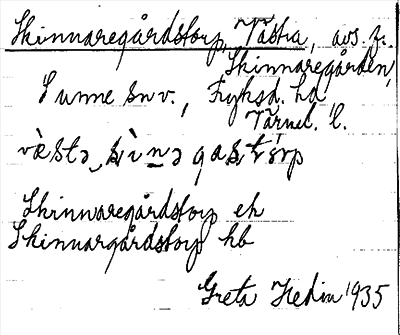 Skinnaregårdstorp, Västra, avs. f.
Skinnaregården,
Sunne snv., Fryksd. hd
Värml. l.
Skinnaregårdstorp ek
Skinnargårdstorp hb
Greta Hedin 1935